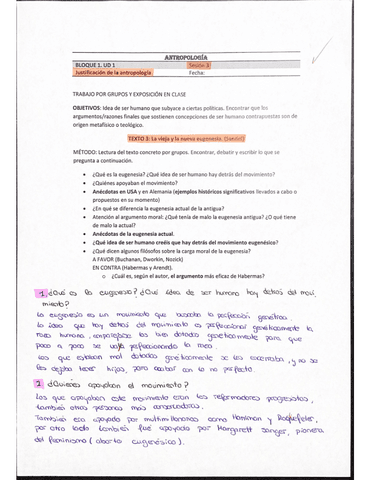 ANTROPOLOGÍA
BLOQUE 1. UD 1 Sesión 3
Justificación de la antropología Fecha:
TRABAJO POR GRUPOS Y EXPOSICIÓN EN CLASE
OBJETIVOS: Idea de ser humano que subyace a ciertas políticas. Encontrar que los
argumentos/razones finales que sostienen concepciones de ser humano contrapuestas son de
origen metafísico o teológico.
TEXTO 3: La vieja y la nueva eugenesia. (Sandel)
MÉTODO: Lectura del texto concreto por grupos. Encontrar, debatir y escribir lo que se
pregunta a continuación.
• ¿Qué es la eugenesia? ¿Qué idea de ser humano hay detrás del movimiento?
• ¿Quiénes apoyaban el movimiento?
• Anécdotas en USA y en Alemania (ejemplos históricos significativos llevados a cabo o
propuestos en su momento)
• ¿En qué se diferencia la eugenesia actual de la antigua?
• Atención al argumento moral: ¿Qué tenía de malo la eugenesia antigua? ¿O qué tiene
de malo la actual?
• Anécdotas de la eugenesia actual.
• ¿Qué idea de ser humano creéis que hay detrás del movimiento eugenésico?
• ¿Qué dicen algunos filósofos sobre la carga moral de la eugenesia?
A FAVOR (Buchanan, Dworkin, Nozick)
EN CONTRA (Habermas y Arendt).
o ¿Cuál es, según el autor, el argumento más eficaz de Habermas?
1. ¿Qué es la eugenesia? ¿Qué idea de ser humano hay detrás del movi-
miento?
La eugenesia es un movimiento que buscaba la perfección genética.
La idea que hay detrás del movimiento es perfeccionar genéticamente la
raza humana, los bien dotados genéticamente para que
poco a poco se vaya perfeccionando la raza.
Los que estaban mal dotados genéticamente se les encerraba, y no se
les dejaba tener hijos, para acabar con lo no perfecto.
2. ¿Quiénes apoyaban el movimiento?
Los que apoyaban este movimiento eran los reformadores progresistas,
también otras personas más conservadoras.
También era apoyado por multimillonarios como Harriman y
por otro lado también fue apoyado por Margarett Sanger, pionera
del feminismo (aborto eugenésico).